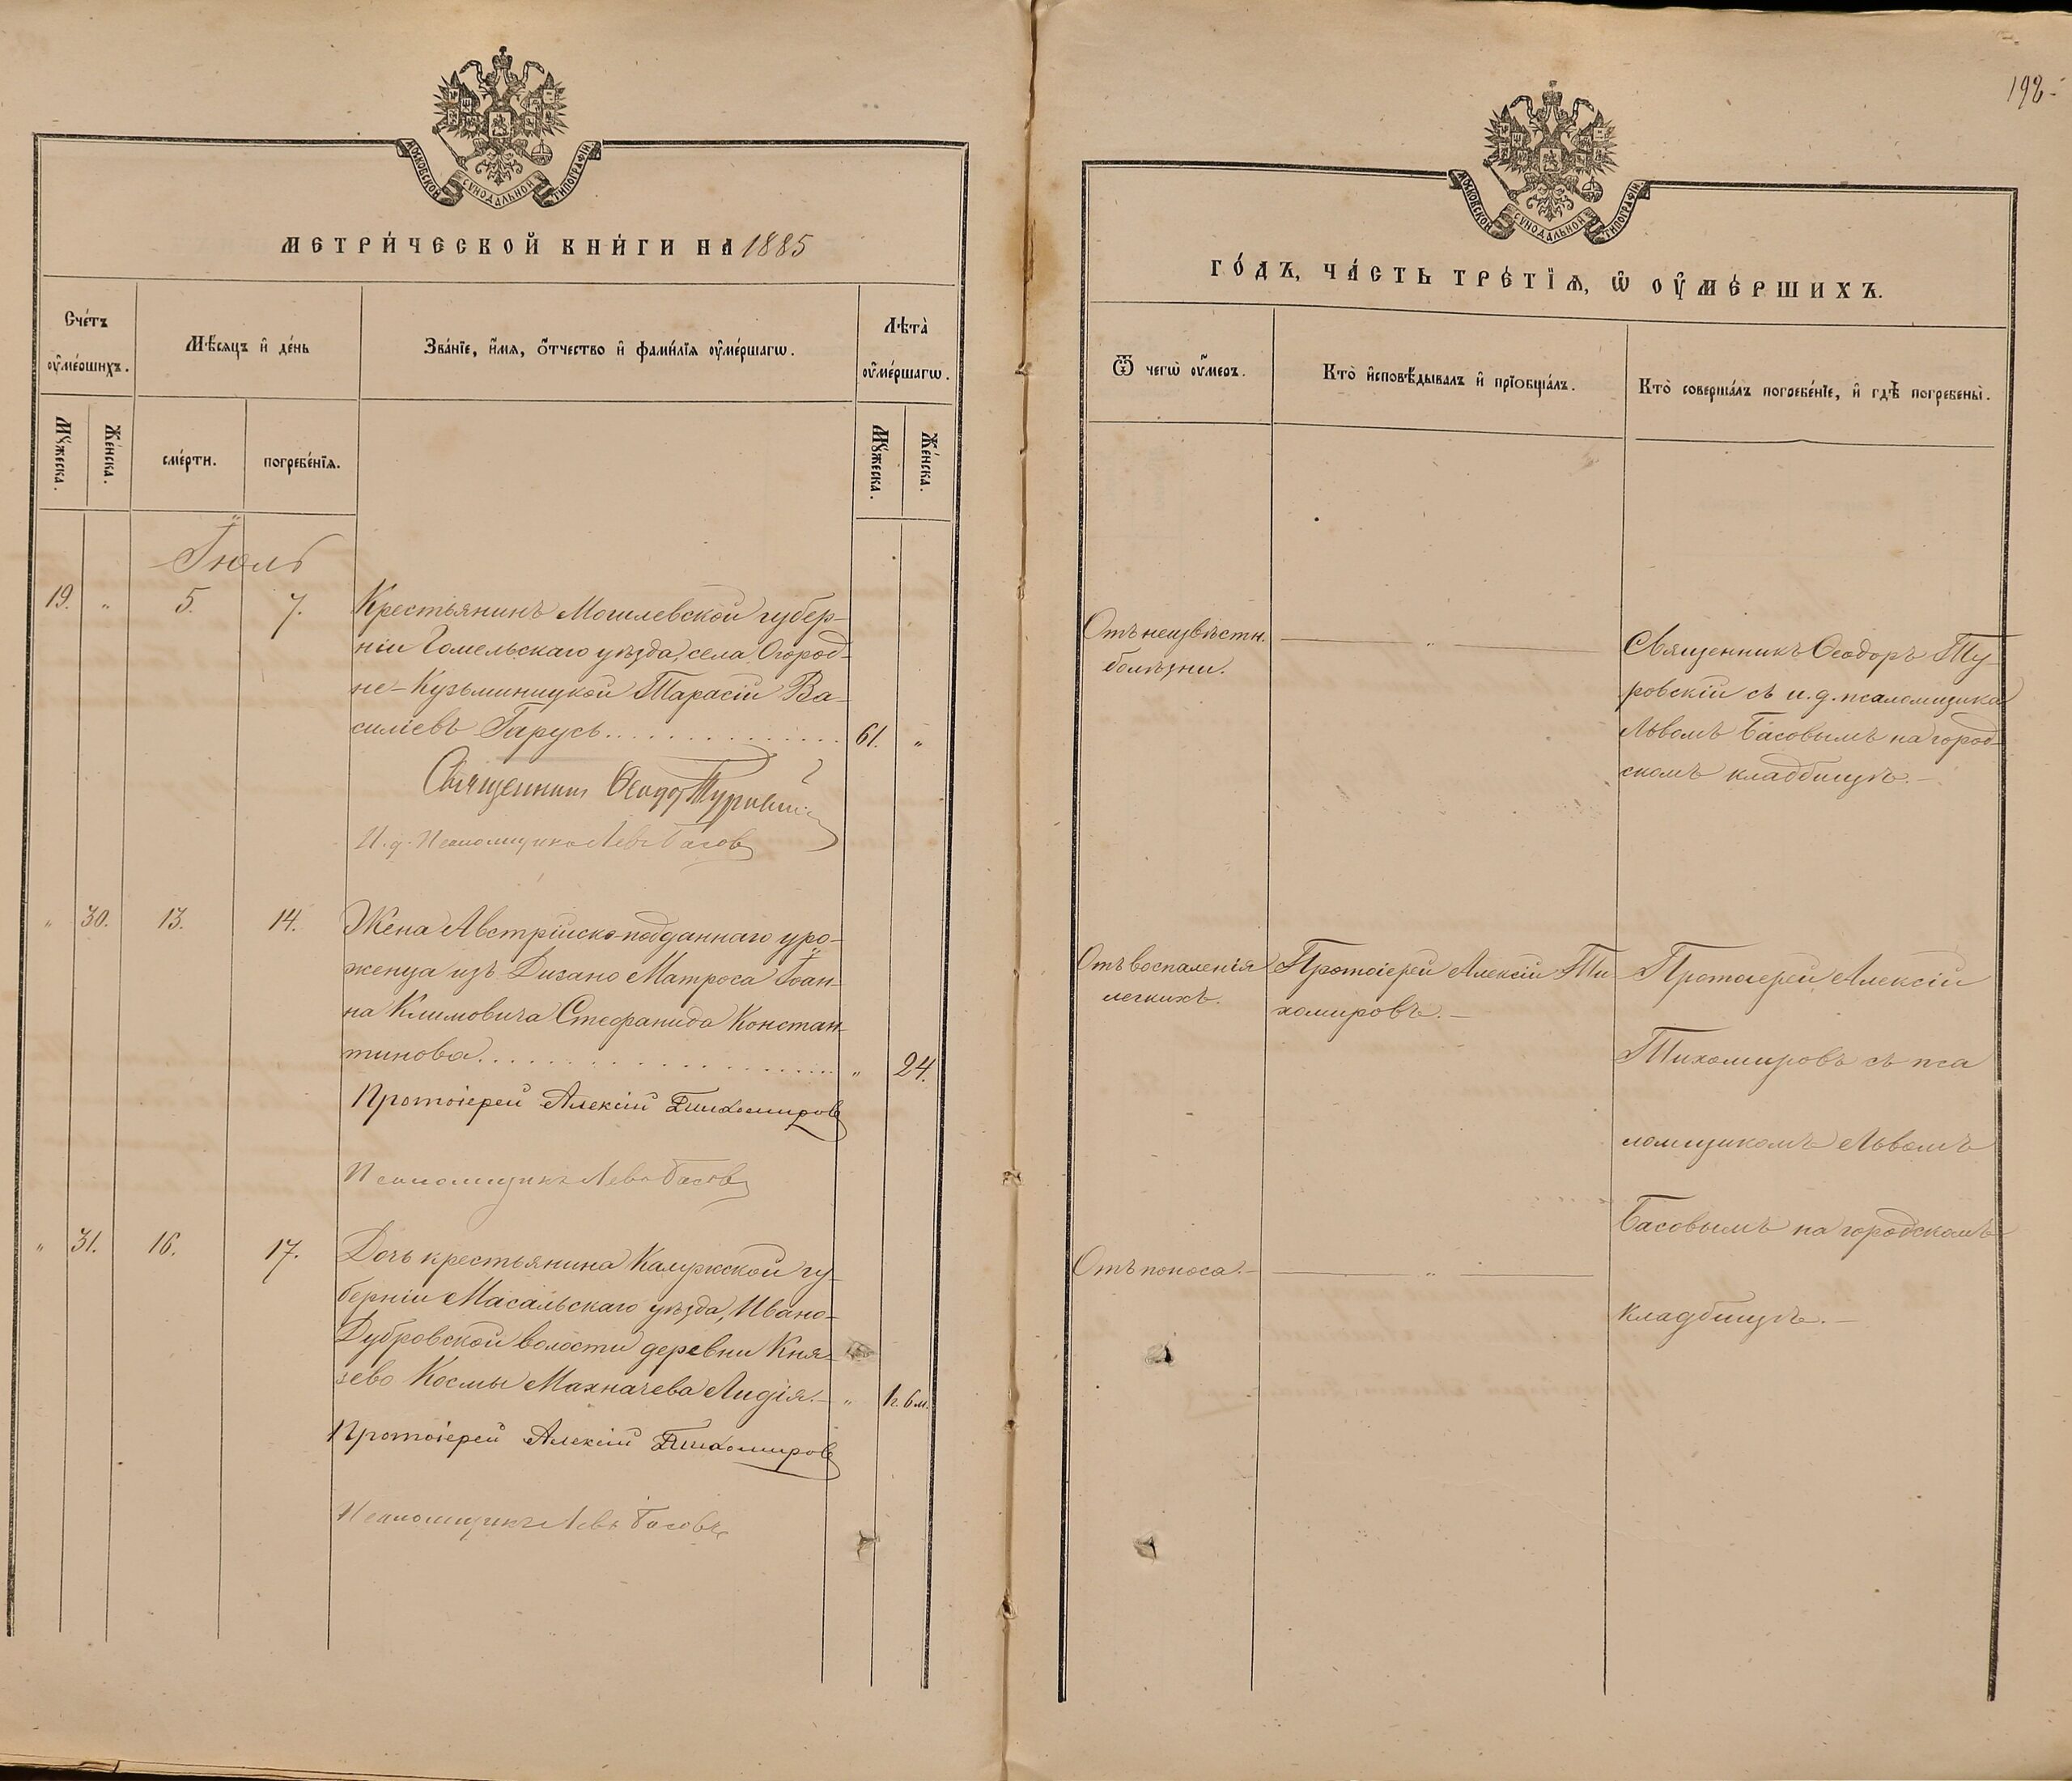 198
МОСКОВСКОЙ СѴНОДАЛЬНОЙ ТИПОГРАФІИ
МЕТРИ́ЧЕСКОЙ КНИ́ГИ НА 1885
Сче́тъ оу҆ме́ршихъ.
Мѣ́сяцъ и҆ де́нь
Зва́нїе, и҆́мя, ѻ҆́тчество и҆ фами́лїя оу҆ме́ршагѡ.
Лѣта̀ оу҆ме́ршагѡ.
Мꙋ́жеска.
Же́нска.
сме́рти.
погребе́нїя.
Мꙋ́жеска.
Же́нска.
Іюль
19. „ 5. 7. Крестьянинъ Могилевской губер-
ніи Гомельскаго уѣзда, села Огород-
не-Кузьминицкой Тарасій Ва-
силіевъ Гарусь. 61. „
Священникъ Ѳеодоръ Туровскій
И. д. Псаломщика Левъ Басовъ
„ 30. 13. 14. Жена Австрійско-подданнаго уро-
женца изъ Дигано Матроса Іоан-
на Климовича Стефанида Констан-
тинова. „ 24.
Протоіерей Алексій Тихомировъ
Псаломщикъ Левъ Басовъ
„ 31. 16. 17. Дочь крестьянина Калужской гу-
берніи Масальскаго уѣзда, Ивано-
Дубровской волости деревни Кня-
зево Космы Махначева Лидія. „ 1 г. 6 м.
Протоіерей Алексій Тихомировъ
Псаломщикъ Левъ Басовъ
МОСКОВСКОЙ СѴНОДАЛЬНОЙ ТИПОГРАФІИ
ГО́ДЪ, ЧА́СТЬ ТРЕ́ТЇЯ, Ѡ҆ ОУ҆МЕ́РШИХЪ.
Ѿ чегѡ̀ оу҆́меръ.
Кто̀ и҆сповѣ́дывалъ и҆ прїобща́лъ.
Кто̀ соверша́лъ погребе́нїе, и҆ гдѣ̀ погребены̀.
Отъ неизвѣстн.
болѣзни.
„
Священникъ Ѳеодоръ Ту-
ровскій съ и. д. псаломщика
Львомъ Басовымъ на город-
скомъ кладбищѣ.
Отъ воспаленія
легкихъ.
Протоіерей Алексій Ти
хомировъ.
Протоіерей Алексій
Тихомировъ съ пса
ломщикомъ Львомъ
Басовымъ на городскомъ
кладбищѣ.
Отъ поноса.
„